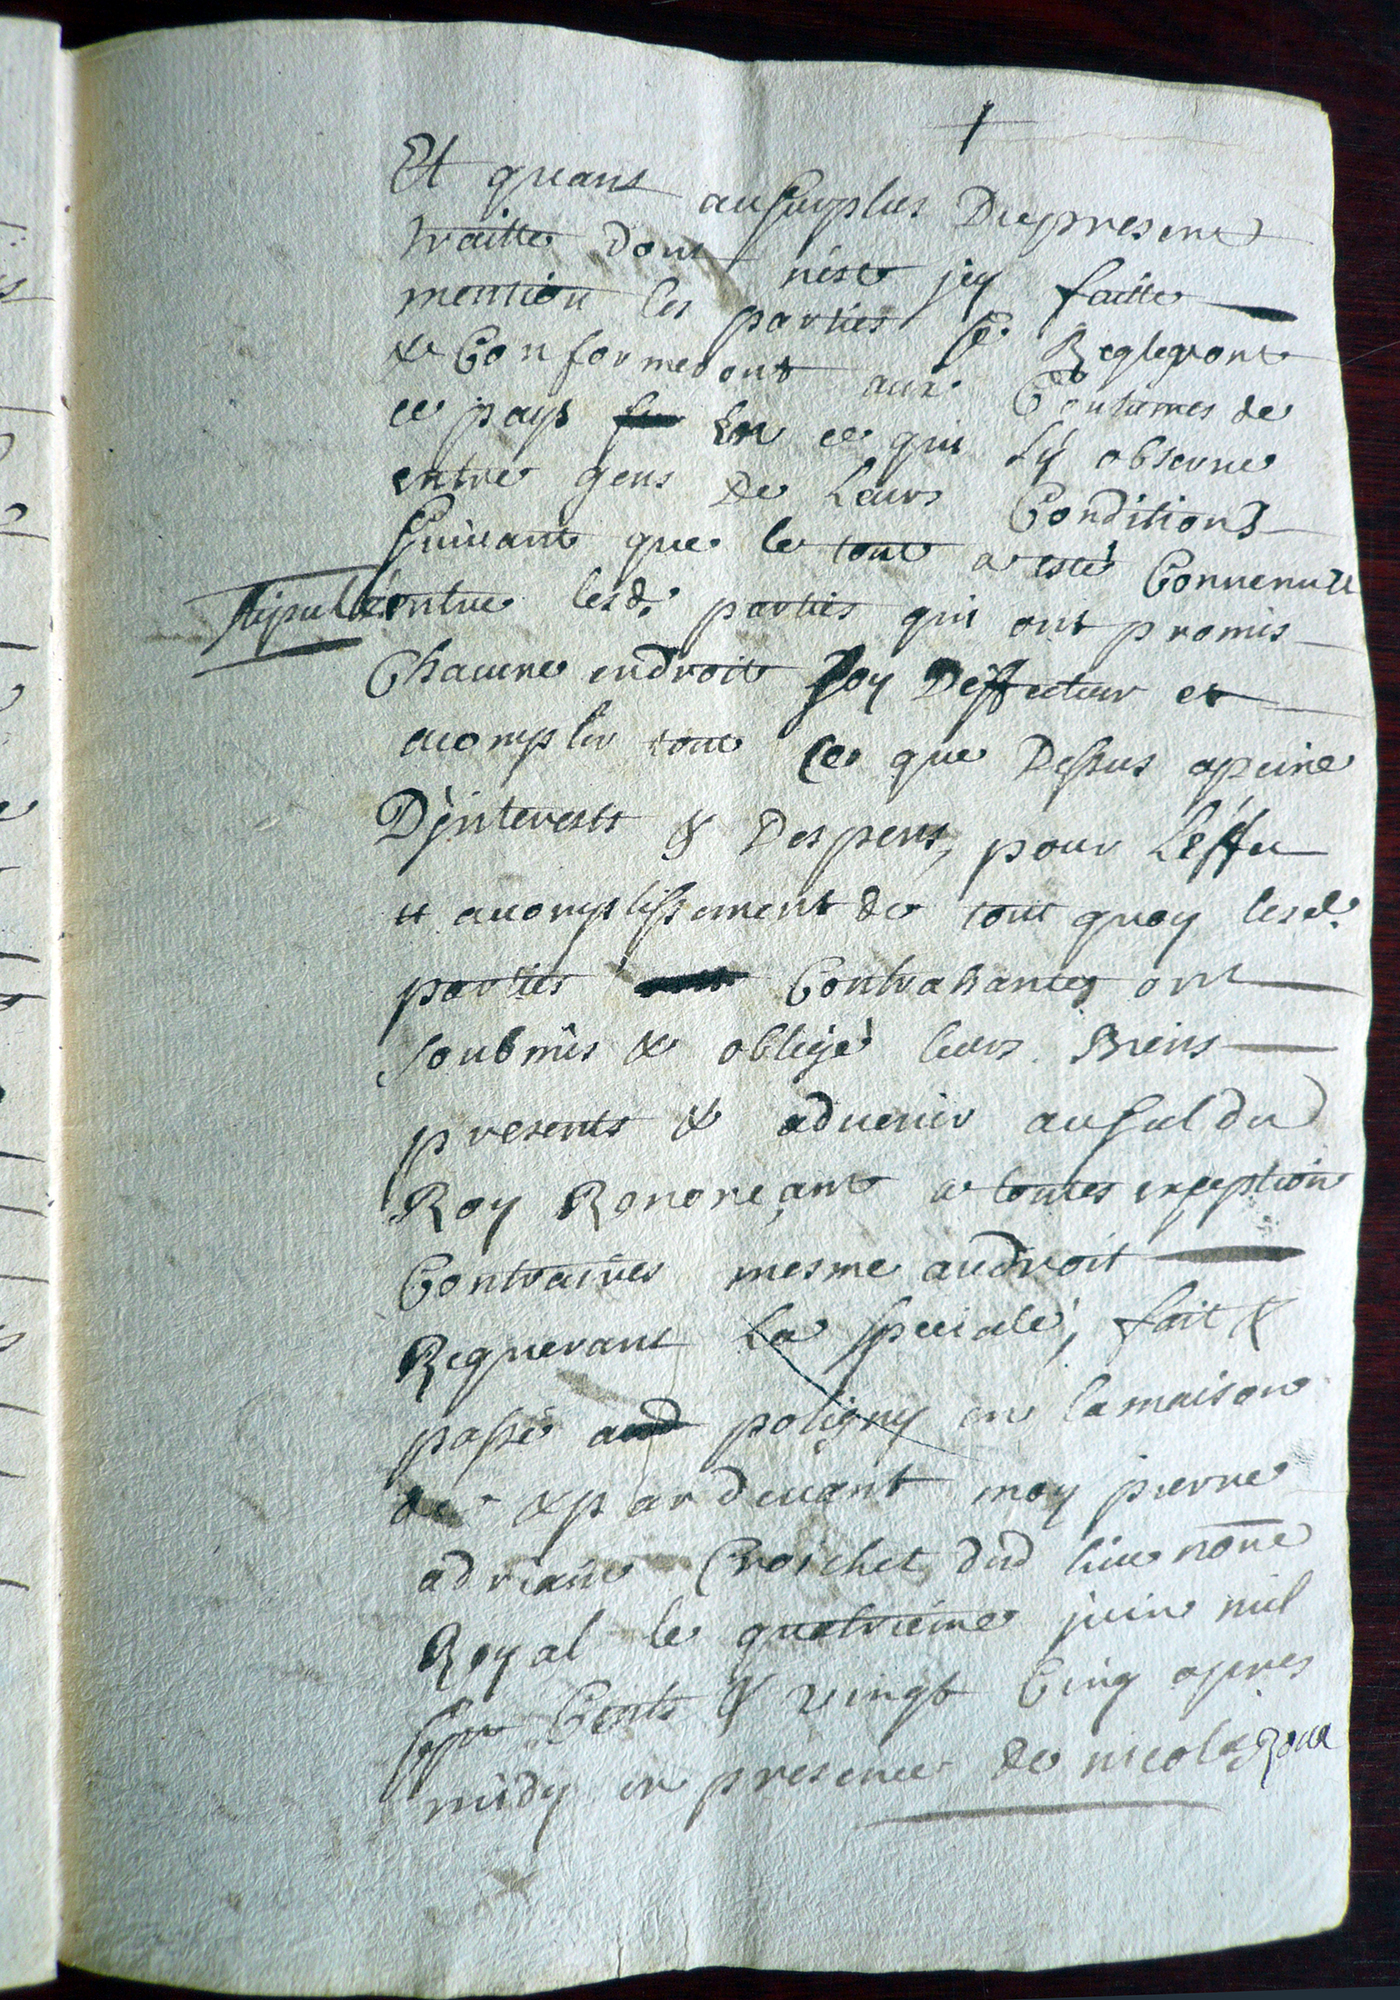 Et quant au surplus Du present
traitte dont nest jcy faitte
mention les parties se Regleront
& Conformeront aux Coutumes de
ce pays En ce qui sy obserue
entre gens De Leurs Conditions
suiuant que le tout a esté Conuenu et
stipullé entre lesd. parties qui ont promis
Chacune endroit soy Deffectuer et
acomplir tout Ce que Dessus apeine
Djnterests & Despens, pour Léffet
et acomplissement de tout quoy lesd.
parties Contrahantes ont
soubmis & obligé leurs Biens
presents & aduenir au scel du
Roy Renonçant a toutes exception
Contraires mesme au droit
Requerant La speciale, fait &
passé a poligny en la maison
de & par deuant moy pierre
adrian Croichet dud lieu no.re
Royal le quatrieme juin mil
sept Cents & vingt Cinq apres
midy en presence de nicolas Roux